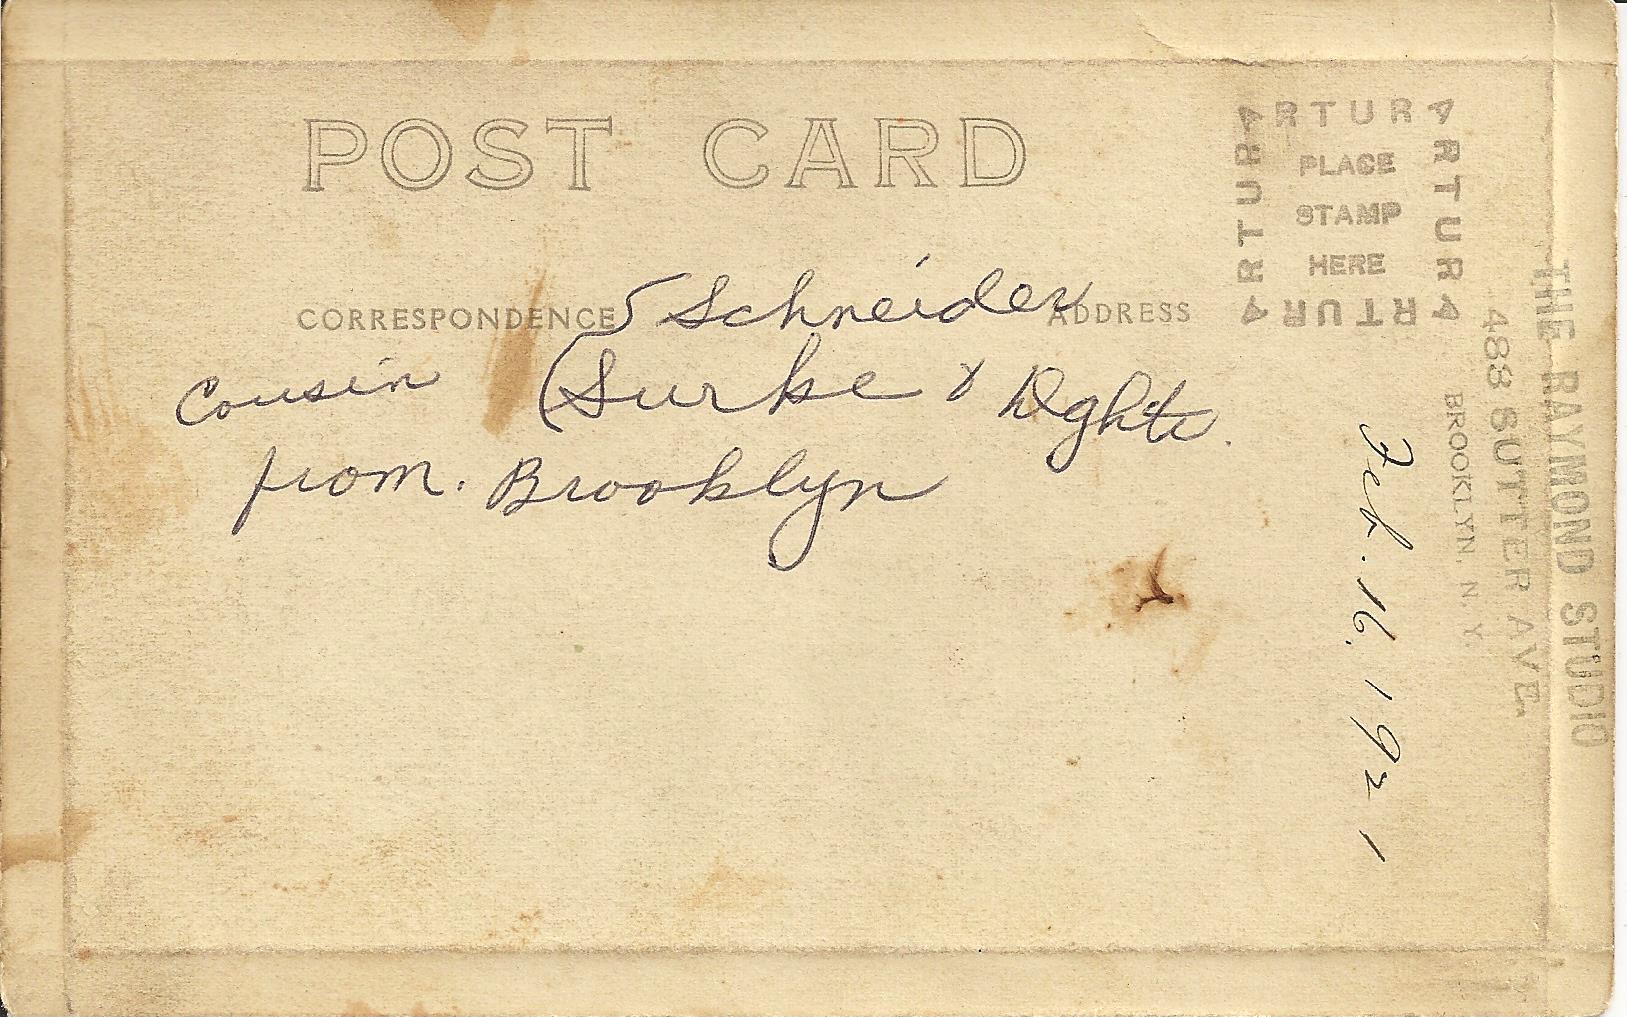 POST CARD
ARTURA
ARTURA
ARTURA
ARTURA
PLACE
STAMP
HERE
CORRESPONDENCE
ADDRESS
Schneider
Cousin (Surke & Dghts.
from. Brooklyn
Feb. 16. 1921
THE RAYMOND STUDIO
488 SUTTER AVE.
BROOKLYN, N. Y.